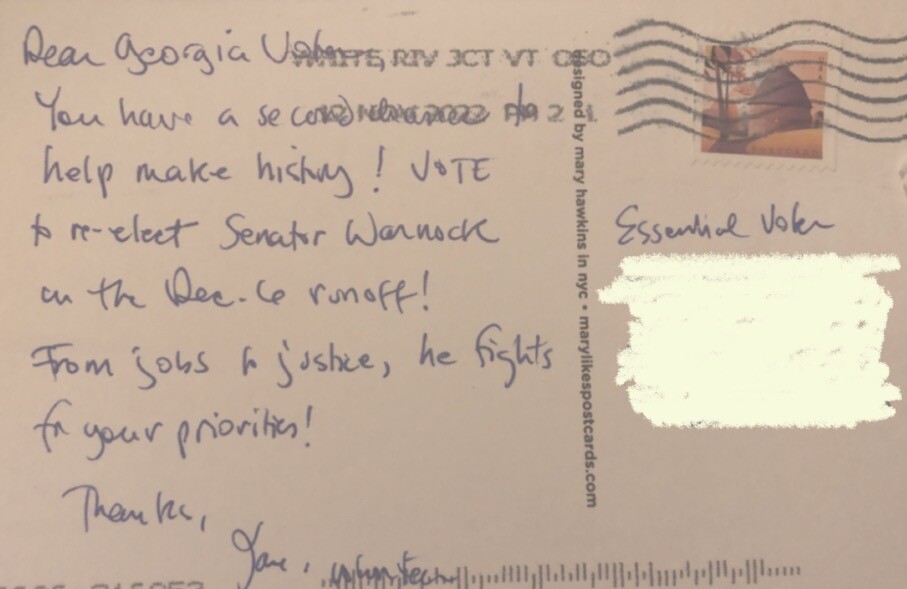 Dear Georgia Voter,
WHITE RIV JCT VT
You have a second chance to
NOV 2022 PM 2 L
help make history! VOTE
to re-elect Senator Warnock
on the Dec. 6 runoff!
From jobs to justice, he fights
for your priorities!
Thanks,
Jane, volunteer
designed by mary hawkins in nyc • marylikespostcards.com
Essential Voter